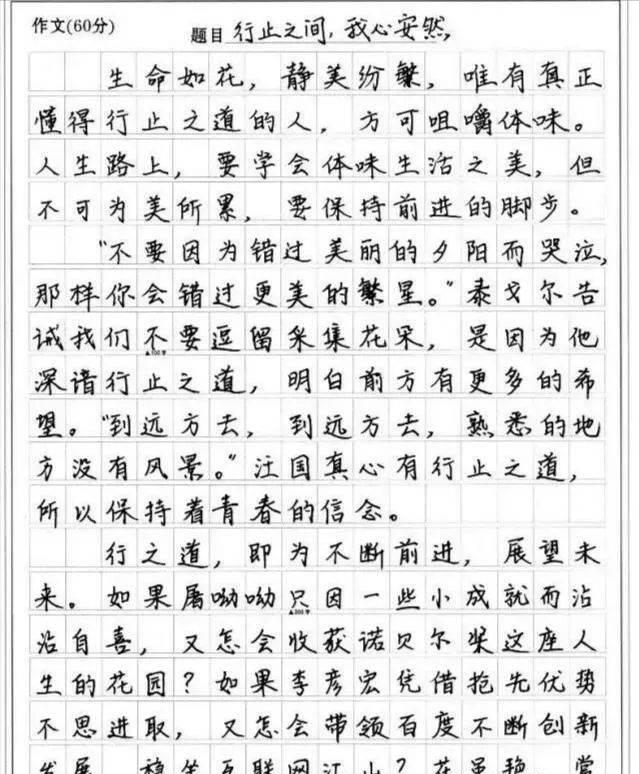 作文(60分)
题目 行止之间,我心安然,
生命如花，静美纷繁，唯有真正
懂得行止之道的人，方可咀嚼体味。
人生路上，要学会体味生活之美，但
不可为美所累，要保持前进的脚步。
“不要因为错过美丽的夕阳而哭泣，
那样你会错过更美的繁星。”泰戈尔告
诫我们不要逗留采集花朵，是因为他
▲100字
深谙行止之道，明白前方有更多的希
望。“到远方去，到远方去，熟悉的地
方没有风景。”汪国真心有行止之道，
所以保持着青春的信念。
行之道，即为不断前进，展望未
来。如果屠呦呦只因一些小成就而沾
沾自喜，又怎会收获诺贝尔奖这座人
生的花园？如果李彦宏凭借抢先优势
不思进取，又怎会带领百度不断创新
发展，稳坐互联网江山？花虽艳，常